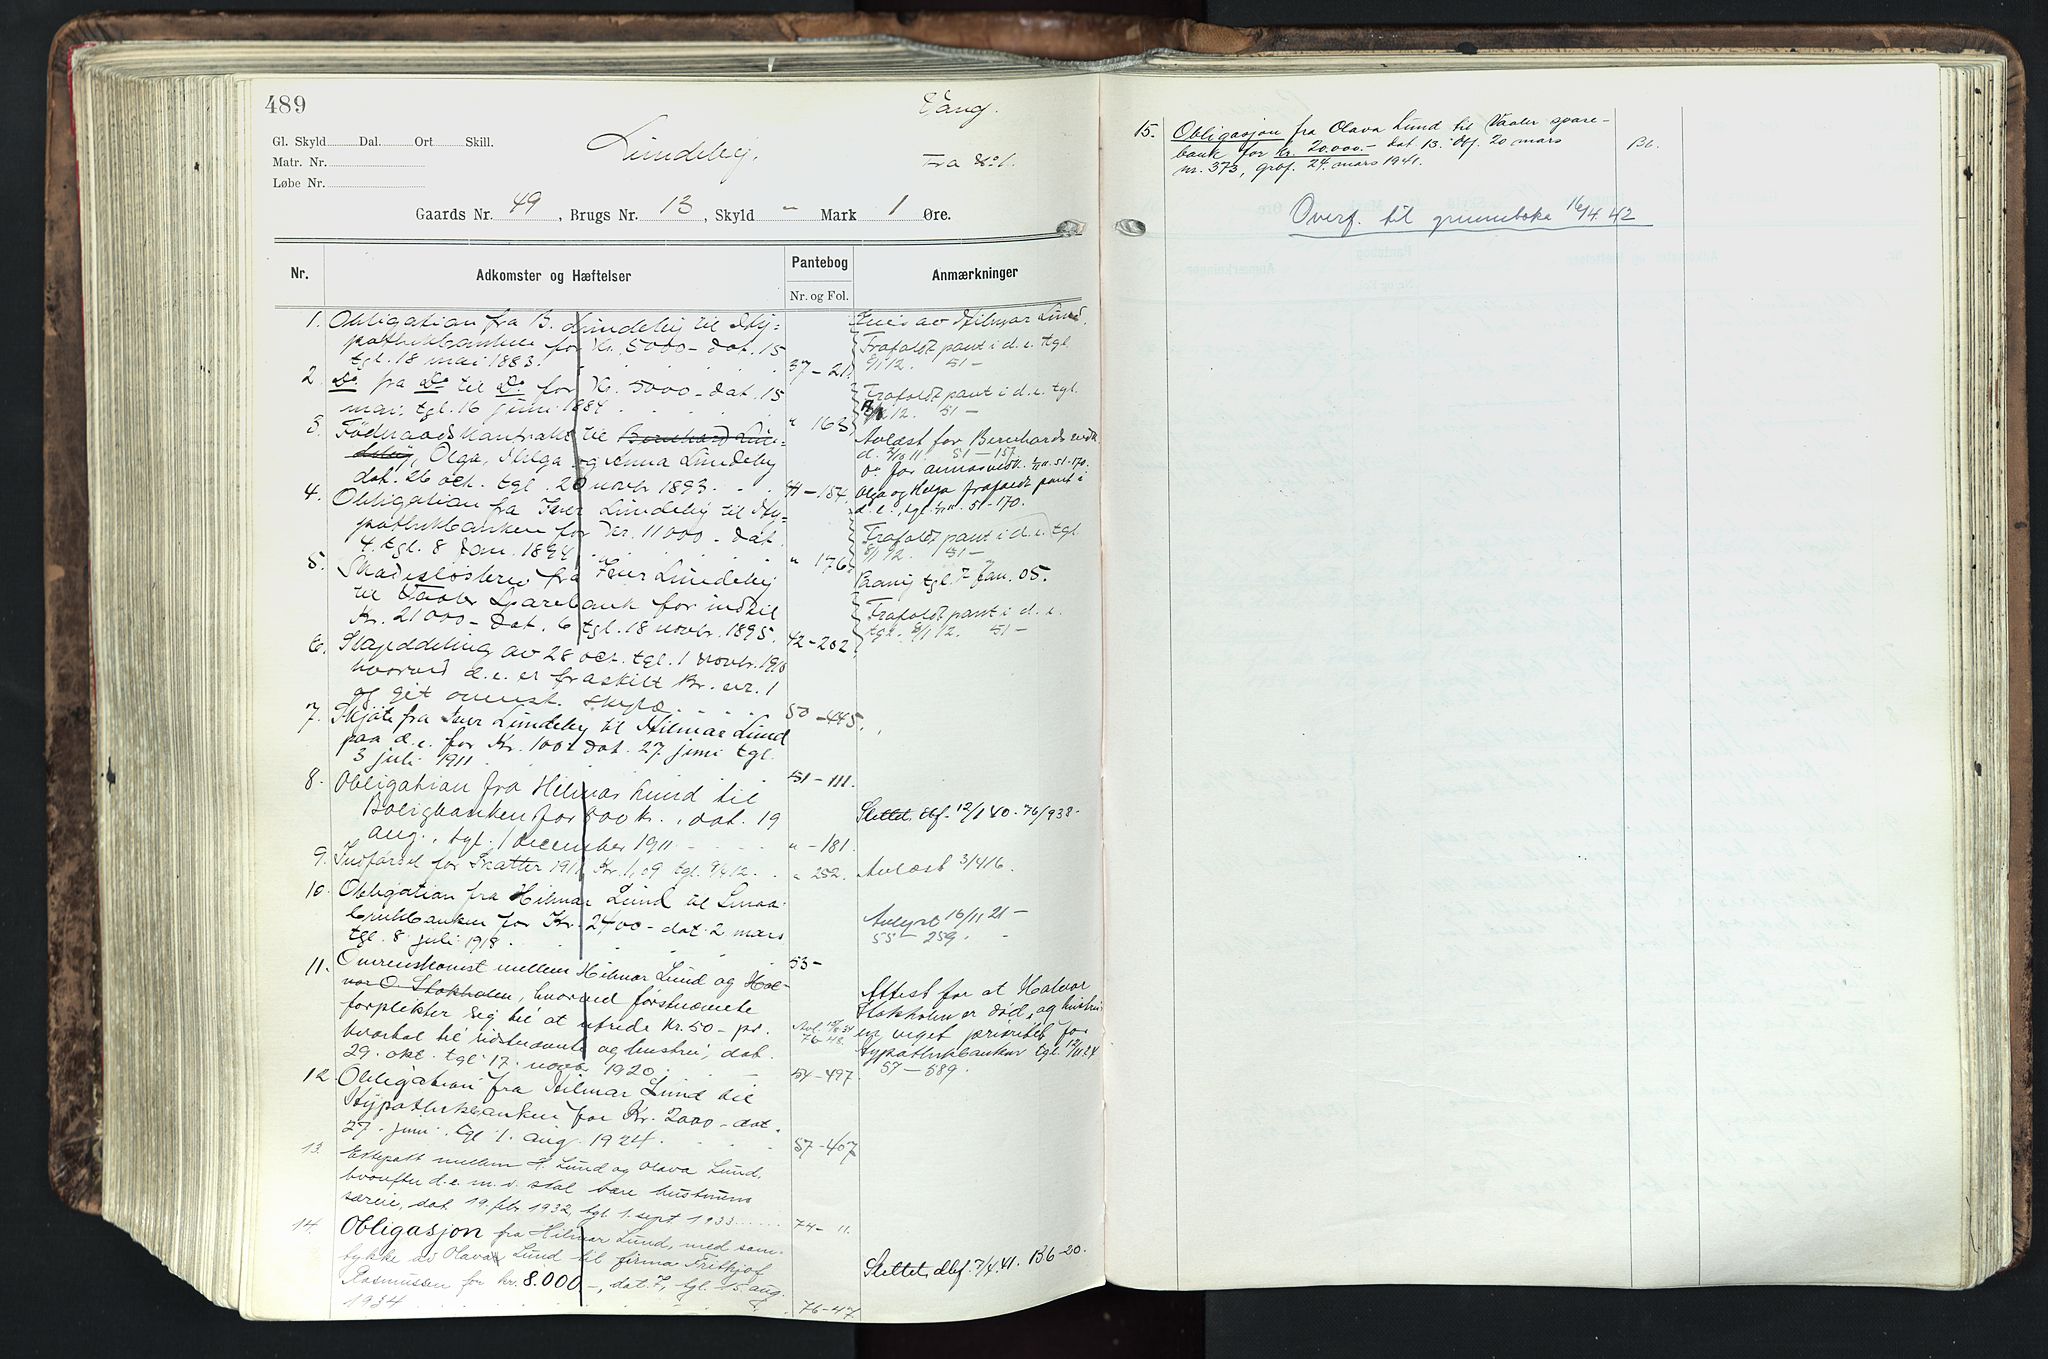 489
Vang.
Gl. Skyld Dal. Ort Skill.
Lundeby.
Fra No 1.
Matr. Nr.
Løbe Nr.
Gaards Nr. 49, Brugs Nr. 13, Skyld " Mark 1 Øre.
Nr. Adkomster og Hæftelser Pantebog Nr. og Fol. Anmærkninger
1. Obligation fra B. Lundeby til Hy=
pothekbanken for Kr. 5000 - dat. 15
tgl. 18 mai 1883. 37-21.
Eies av Hilmar Lund.
Frafaldt pant i d. e. tgl.
8/1 12. 51-
2 Do fra Do til Do for Kr. 5000 - dat. 15
mai. tgl. 16 juni 1884 " 163
Frafaldt pant i d. e. tgl.
8/1 12. 51-
3. Föderaadskontrakt til Bernhard Lun=
deby, Olga, Helga og Anna Lundeby
dat. 26 oct. tgl. 20 novbr 1893. 41-154
Avlæst for Bernhards vedk.
51-157
Do for Annas vedk. 51-170.
Olga og Helga frafaldt pant i
d. e., tgl. 51-170.
4. Obligation fra Iver Lundeby til Hy=
pothekbanken for Kr. 11000 - dat.
4. tgl. 8 Jan. 1894 " 176
Frafaldt pant i d. e. tgl.
8/1 12. 51-
5. Skadesløsbrev fra Iver Lundeby
til Vaaler Sparebank for indtil
Kr. 21000 - dat. 6 tgl. 18 novbr. 1895. 42-202
tgl. 7 Jan. 05.
Frafaldt pant i d. e.
tgl. 8/1 12. 51-
6. Skylddeling av 28 oct. tgl. 1 novbr. 1910
hvorved d. e. er fraskilt Br. nr. 1
og git ovenst. skyld. 50-445.
7. Skjøte fra Iver Lundeby til Hilmar Lund
paa d. e. for Kr. 100 - dat. 27 juni tgl.
3 juli 1911 51-111.
8. Obligation fra Hilmar Lund til
Boligbanken for 800 kr., dat. 19
aug., tgl. 1 december 1911 " -181.
Slettet, dbf. 12/1 40. 76/938.
9. Indførsel for Skatter 1911 Kr. 1,09 tgl. 9/4 12. " 252.
Avlæst 3/4 16.
10. Obligation fra Hilmar Lund til Smaa=
brukbanken for Kr. 2400 - dat. 2 mars
tgl. 8 juli 1918. 53-
Avlyst 16/11 21 -
55-259.
11. Overenskomst mellem Hilmar Lund og Hal=
vor O Stokholen, hvorved førstnævnte
forplikter sig til at utrede Kr. 50 - pr.
kvartal til sidstnævnte og hustru, dat.
29. okt. tgl. 17. novbr 1920. 54-497
76-48
Attest for at Halvor
Stokholen er død, og hustru
veget prioritet for
Hypothekbanken tgl. 12/11 24
57-589.
12. Obligation fra Hilmar Lund til
Hypothekbanken for Kr. 2000 - dat.
27. juni. tgl 1. aug. 1924. 57-407
13. Ektepakt mellem H. Lund og Olava Lund,
hvorefter d. e. m. v. skal være hustruens
særeie, dat. 19. febr 1932, tgl. 1. sept 1933 74- 11.
14. Obligasjon fra Hilmar Lund, med sam=
tykke av Olava Lund til firma Frithjof
Rasmussen for kr. 8.000 -, dat. 7, tgl. 15. aug.
1934 76-47
Slettet, dbf. 7/4. 41. B6-20.
15. Obligasjon fra Olava Lund til Vaaler spare-
bank for kr. 20.000.- dat 13. dbf. 20 mars
nr. 373, grbf. 24. mars 1941. B6.
Overf. til grunnboka 16/4 42